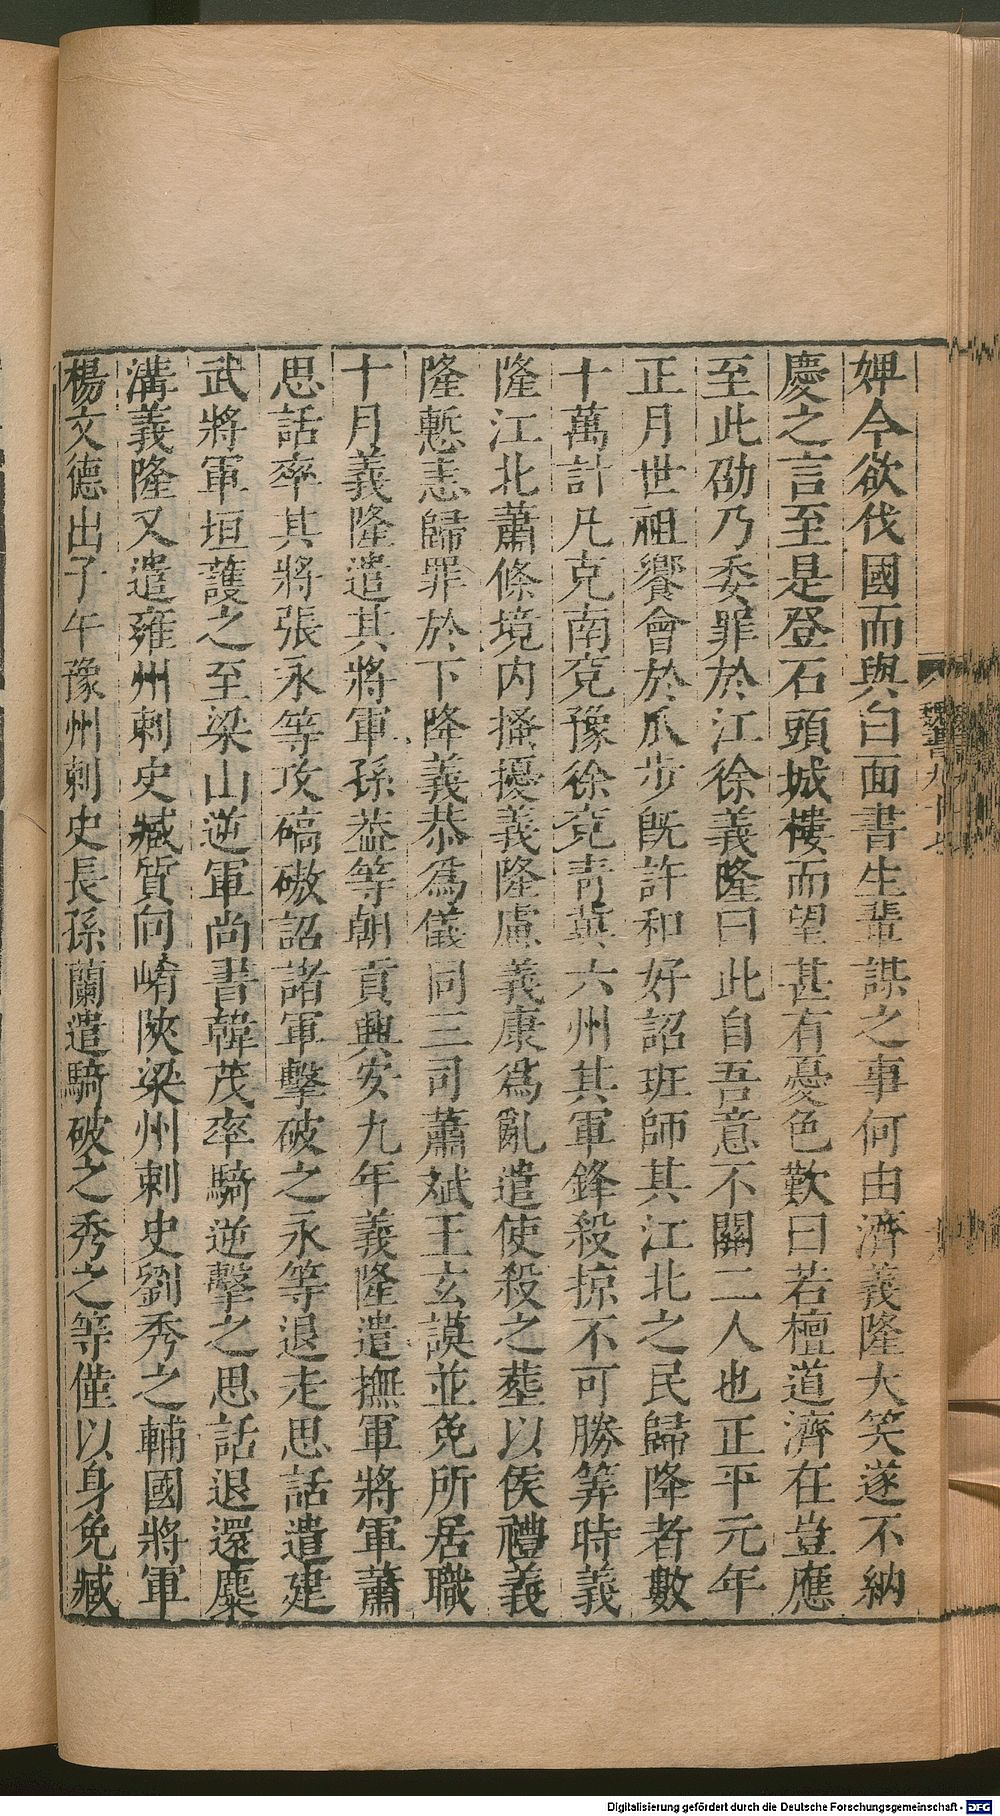 婢今欲伐國而與白面書生輩謀之事何由濟義隆大笑遂不納
慶之言至是登石頭城樓而望甚有憂色歎曰若檀道濟在豈應
至此劭乃委罪於江徐義隆曰此自吾意不關二人也正平元年
正月世祖饗會於瓜步旣許和好詔班師其江北之民歸降者數
十萬計凡克南兗豫徐兗青冀六州其軍鋒殺掠不可勝筭時義
隆江北蕭條境內搔擾義隆慮義康爲亂遣使殺之葬以侯禮義
隆慙恚歸罪於下降義恭爲儀同三司蕭斌王玄謨並免所居職
十月義隆遣其將軍孫蓋等朝貢興安九年義隆遣撫軍將軍蕭
思話率其將張永等攻碻磝詔諸軍擊破之永等退走思話遣建
武將軍垣護之至梁山逆軍尚書韓茂率騎逆擊之思話退還麋
溝義隆又遣雍州刺史臧質向崤陝梁州刺史劉秀之輔國將軍
楊文德出子午豫州刺史長孫蘭遣騎破之秀之等僅以身免臧
魏書九十七
Digitalisierung gefördert durch die Deutsche Forschungsgemeinschaft - DFG